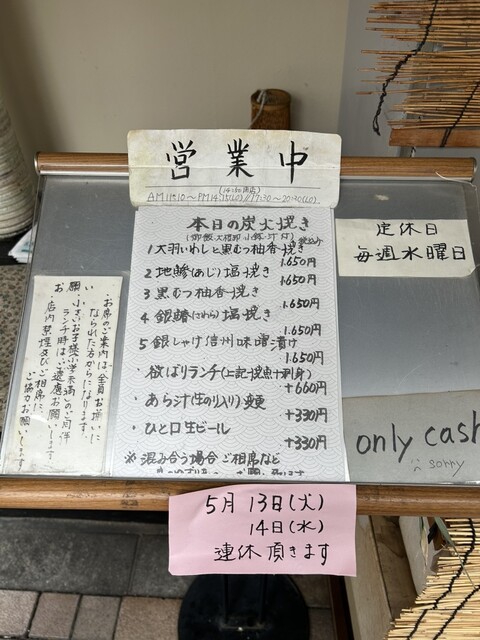 営業中
AM11:10〜PM14:15(LO)//17:30〜20:30(LO)
本日の炭火焼き
1 大羽いわしと黒むつ柚香焼き
1.650円
2 地鯵(あじ)塩焼き
1.650円
3 黒むつ柚香焼き
1.650円
4 銀鰆(さわら)塩焼き
1.650円
5 銀しゃけ信州味噌漬け
1.650円
・欲ばりランチ(上記一焼魚+刺身)
+660円
・あら汁(生のり入り)変更
+330円
・ひと口生ビール
+330円
※混み合う場合ご相席など
・お席のご案内は全員お揃いに
なられた方からになります。
・小さいお子様(小学生未満)のご同伴
ランチ時はご遠慮お願いします
・店内禁煙及びご相席に
ご協力お願いします
お願い
定休日
毎週水曜日
only cash
sorry
5月13日(火)
14日(水)
連休頂きます